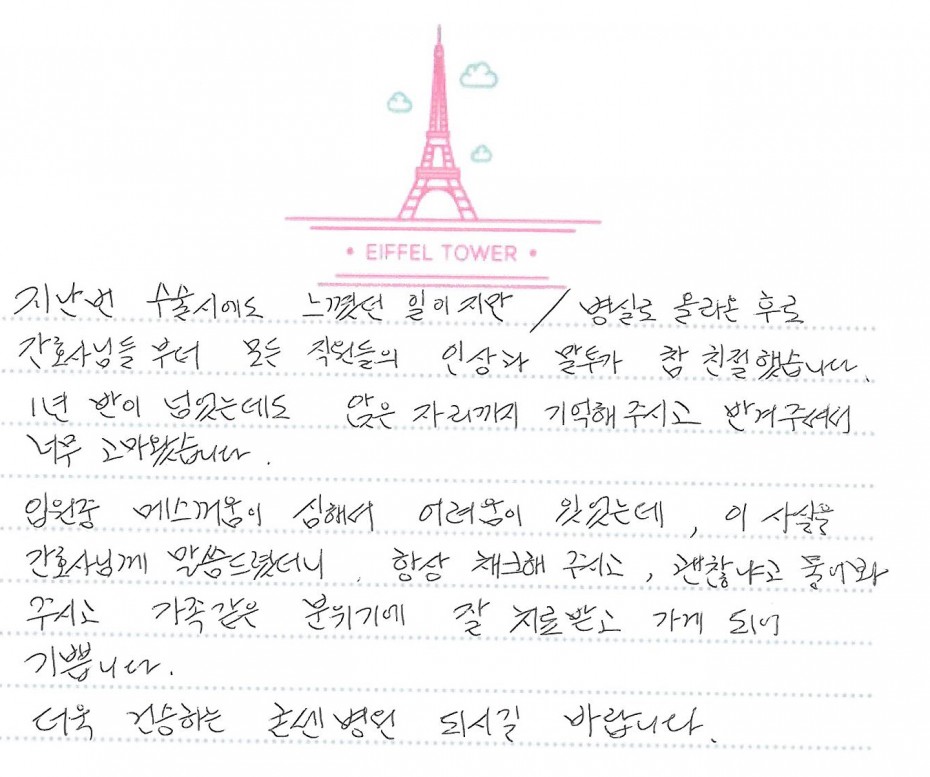 • EIFFEL TOWER •
지난번 수술시에도 느꼈던 일이지만 / 병실로 올라온 후로
간호사님들 부터 모든 직원들의 인상과 말투가 참 친절했습니다.
1년 반이 넘었는데도 앉은 자리까지 기억해 주시고 반겨주셔서
너무 고마웠습니다.
입원중 메스꺼움이 심해서 어려움이 있었는데, 이 사실을
간호사님께 말씀드렸더니, 항상 체크해 주시고, 괜찮냐고 물어봐
주시고 가족같은 분위기에 잘 치료받고 가게 되어
기쁩니다.
더욱 건승하는 굳쎈병원 되시길 바랍니다.